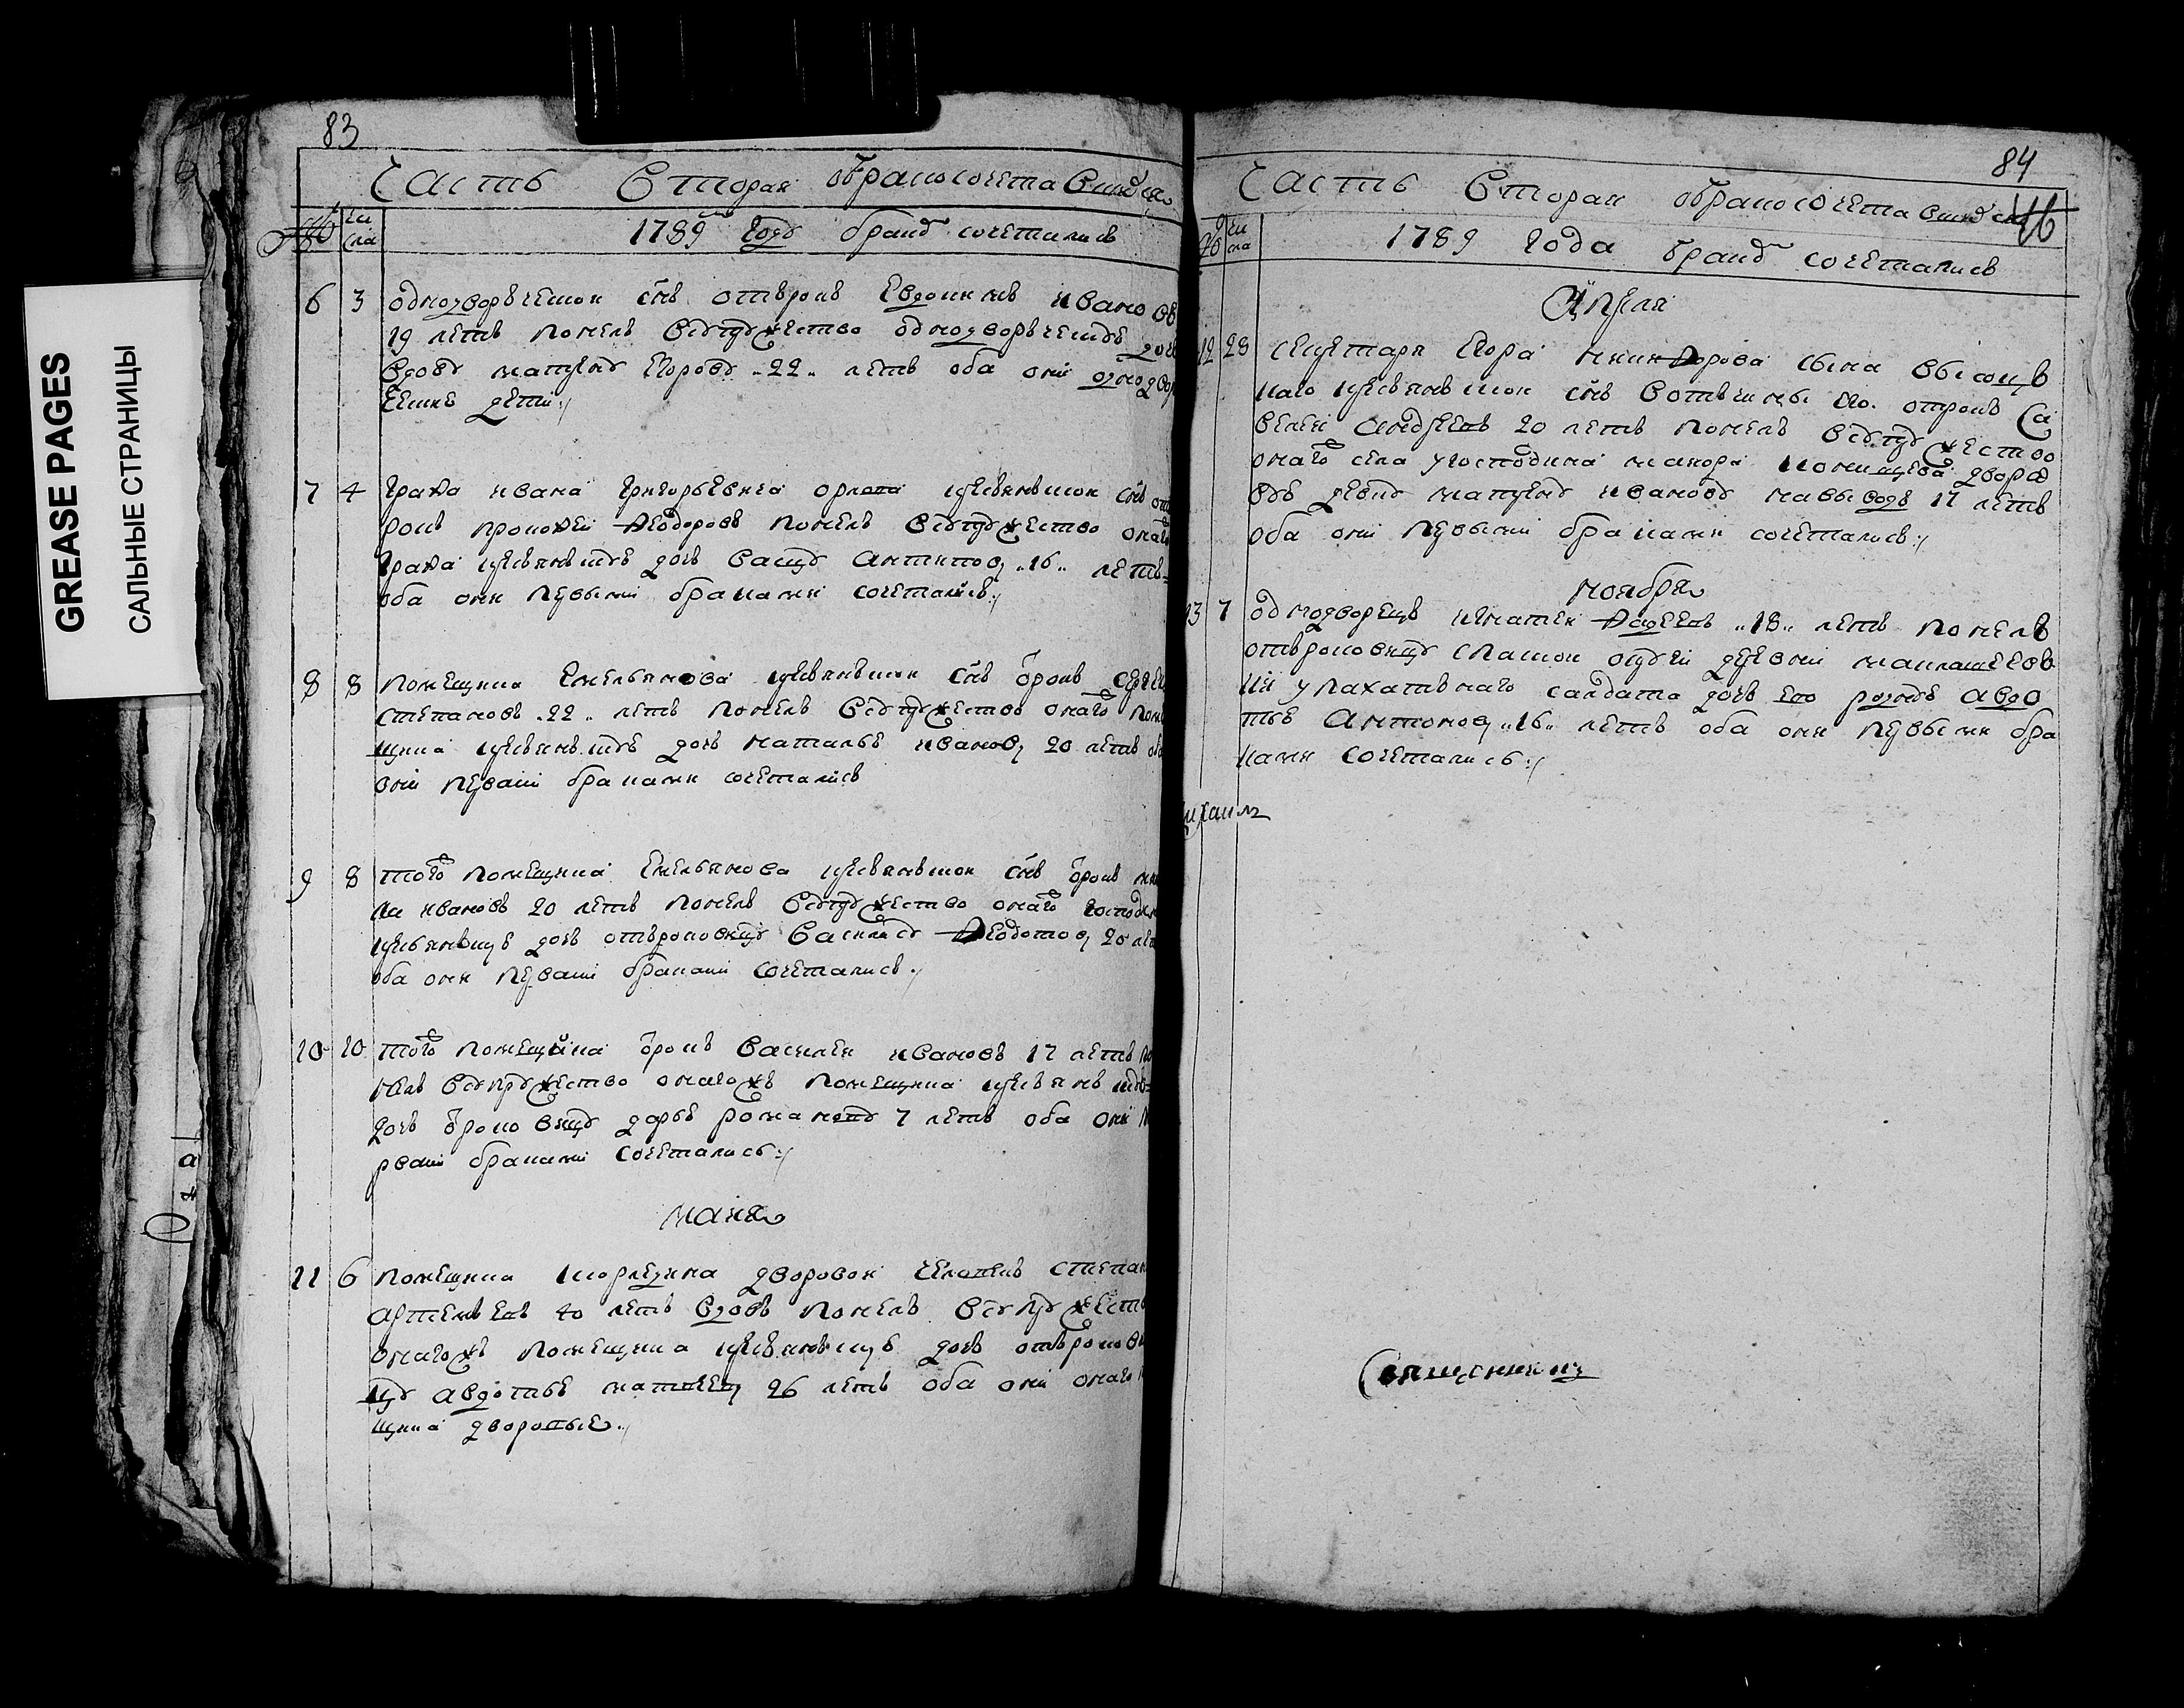 GREASE PAGES
САЛЬНЫЕ СТРАНИЦЫ
83
Часть Вторая обракосочета
числа 1789 году бракъ сочетались
6 3 однодворческой снъ отьрокъ Евдокимъ ивановъ
19 летъ понелъ всупружество однодворческую дочь
вдову егорову 22 летъ оба они однодвор
ческие дети
7 4 Графа ивана Григорьевича орлова крестьянской снъ от
рокъ прокофей Федоровъ понелъ всупружество онаго
Графа крестьянскую дочь Антипову 16 летъ
оба они первыми браками сочетались
8 8 помещика Емельянова крестьянской снъ отрокъ Сергей
степановъ 22 летъ понелъ всупружество онаго поме
щика крестьянскую дочь наталью иванову 20 летъ оба
они первыми браками сочетались
9 8 того помещика Емельянова крестьянской снъ отрокъ
ивановъ 20 летъ понелъ всупружество онаго господина
крестьянскую дочь отьроковицу Василису Федотову 20 лет
оба они первыми браками сочетались
10 10 того помещика отрокъ Василей ивановъ 17 летъ по
нелъ всупружество онагожъ помещика крестьянскую
дочь отроковицу дарью романову 7 летъ оба они пе
рвыми браками сочетались
маия
11 6 помещика дворовой человекъ степан
Артемьевъ 40 летъ вдовъ понелъ всупружеств
онагожъ помещика крестьянскую дочь отьрокови
цу авдотью матвееву 26 летъ оба они онаго по
щика дворовые
84
46
Часть Вторая обракосочета
числа 1789 года бракъ сочетались
Апреля
12 28 секретаря Егора никифорова сына
каго крестьянской снъ вотчины его отрокъ Са
велей 20 летъ понелъ всупружество
онаго села угосподина маиора двора
девку иванову 17 летъ
оба они первыми браками сочетались
ноября
13 7 однодворецъ игнатей Фадеевъ 18 летъ понелъ
отьроковицу спаской округи деревни
ки упахатьнаго салдата дочь его родную авдо
тью Антонову 16 летъ оба они первыми бра
ками сочетались
Михаилъ
Священникъ